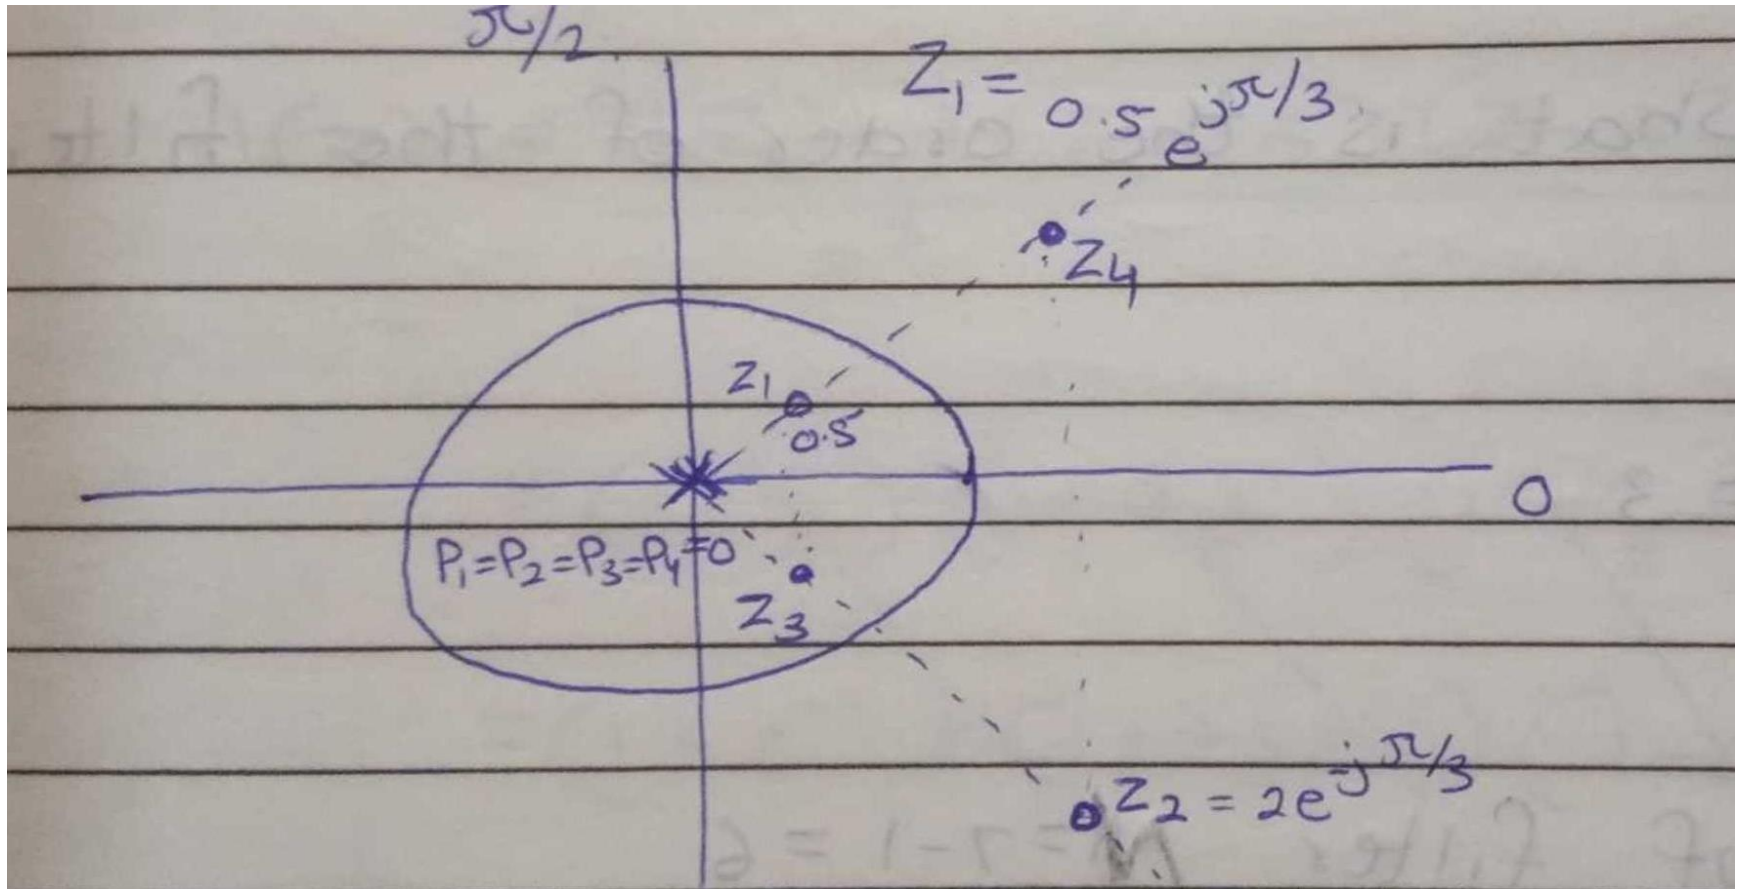 π/2
Z₁ = 0.5 e^{jπ/3}
Z₄
Z₁
0.5
0
P₁=P₂=P₃=P₄=0
Z₃
Z₂ = 2e^{-jπ/3}